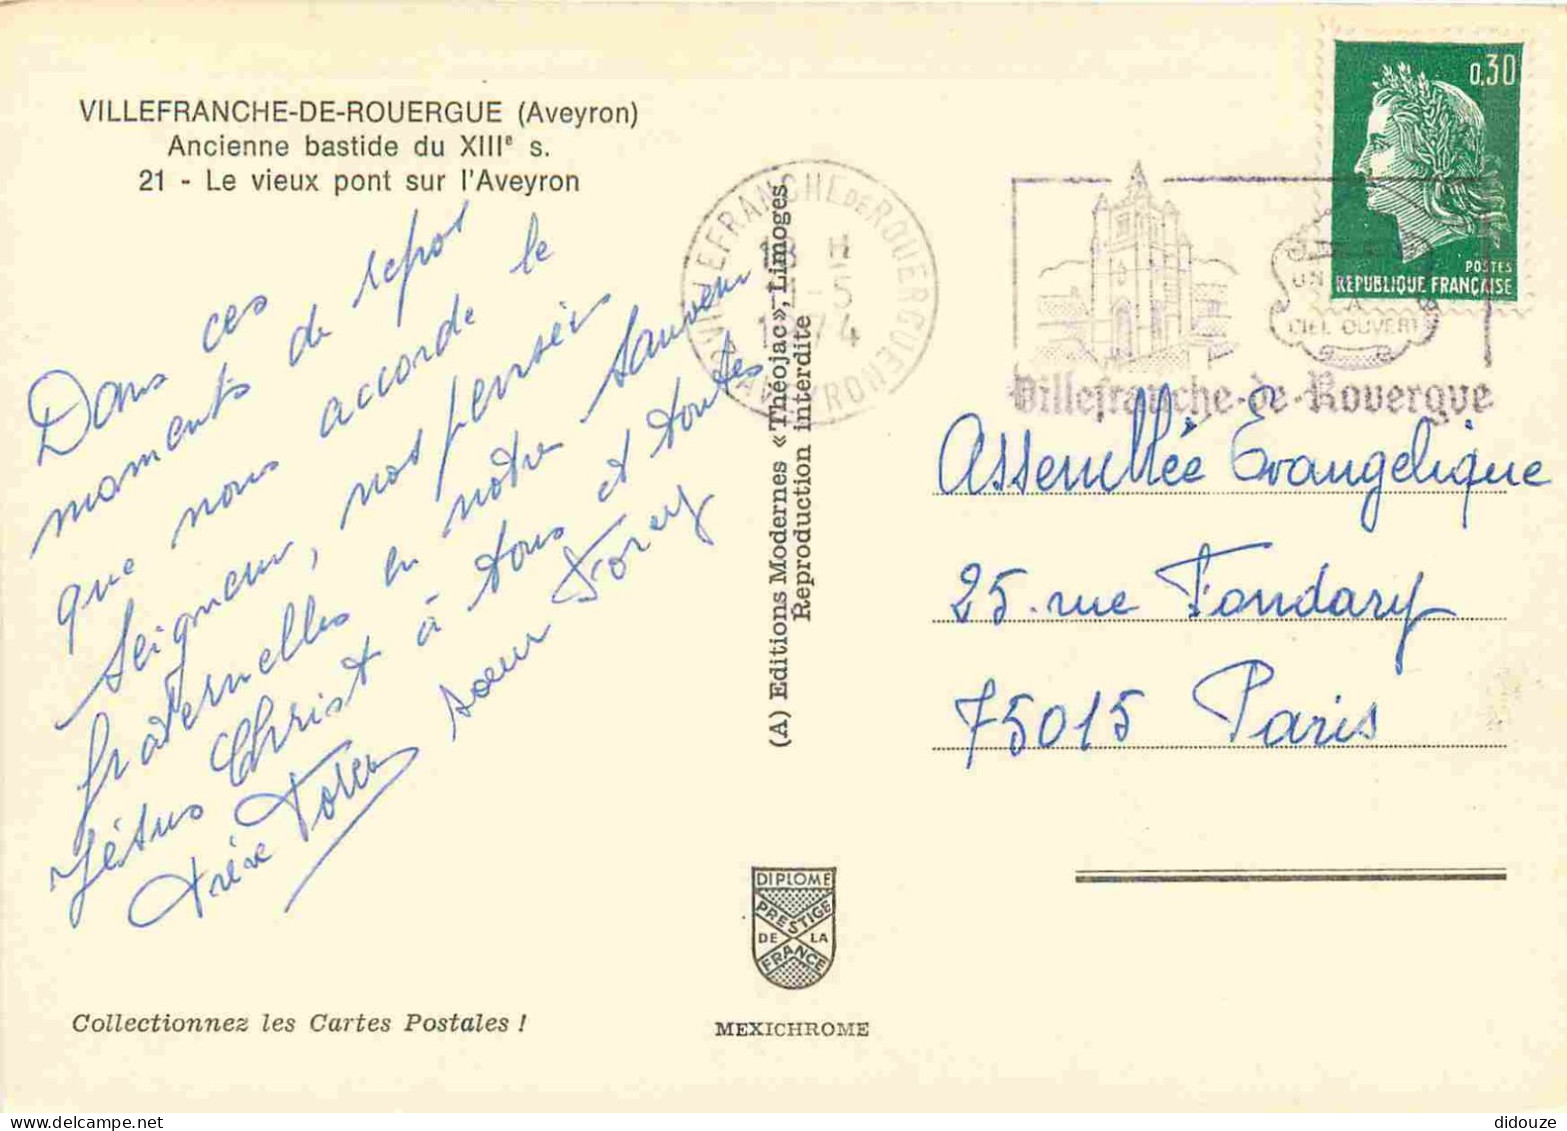 VILLEFRANCHE-DE-ROUERGUE (Aveyron)
Ancienne bastide du XIIIᵉ s.
21 - Le vieux pont sur l'Aveyron
Dans ces
moments de repos
que nous accorde le
Seigneur, nos pensées
fraternelles en notre Sauveur
Jésus Christ à tous et toutes
frère soeur
Collectionnez les Cartes Postales !
(A) Editions Modernes «Théojac», Limoges
Reproduction interdite
DIPLOME
PRESTIGE
DE LA
FRANCE
MEXICHROME
VILLEFRANCHE DE ROUERGUE
18 H
-5
1974
AVEYRON
UN
A
CIEL OUVERT
Villefranche-de-Rouergue
0,30
POSTES
REPUBLIQUE FRANÇAISE
Assemblée Evangelique
25. rue Fondary
75015 Paris
didouze